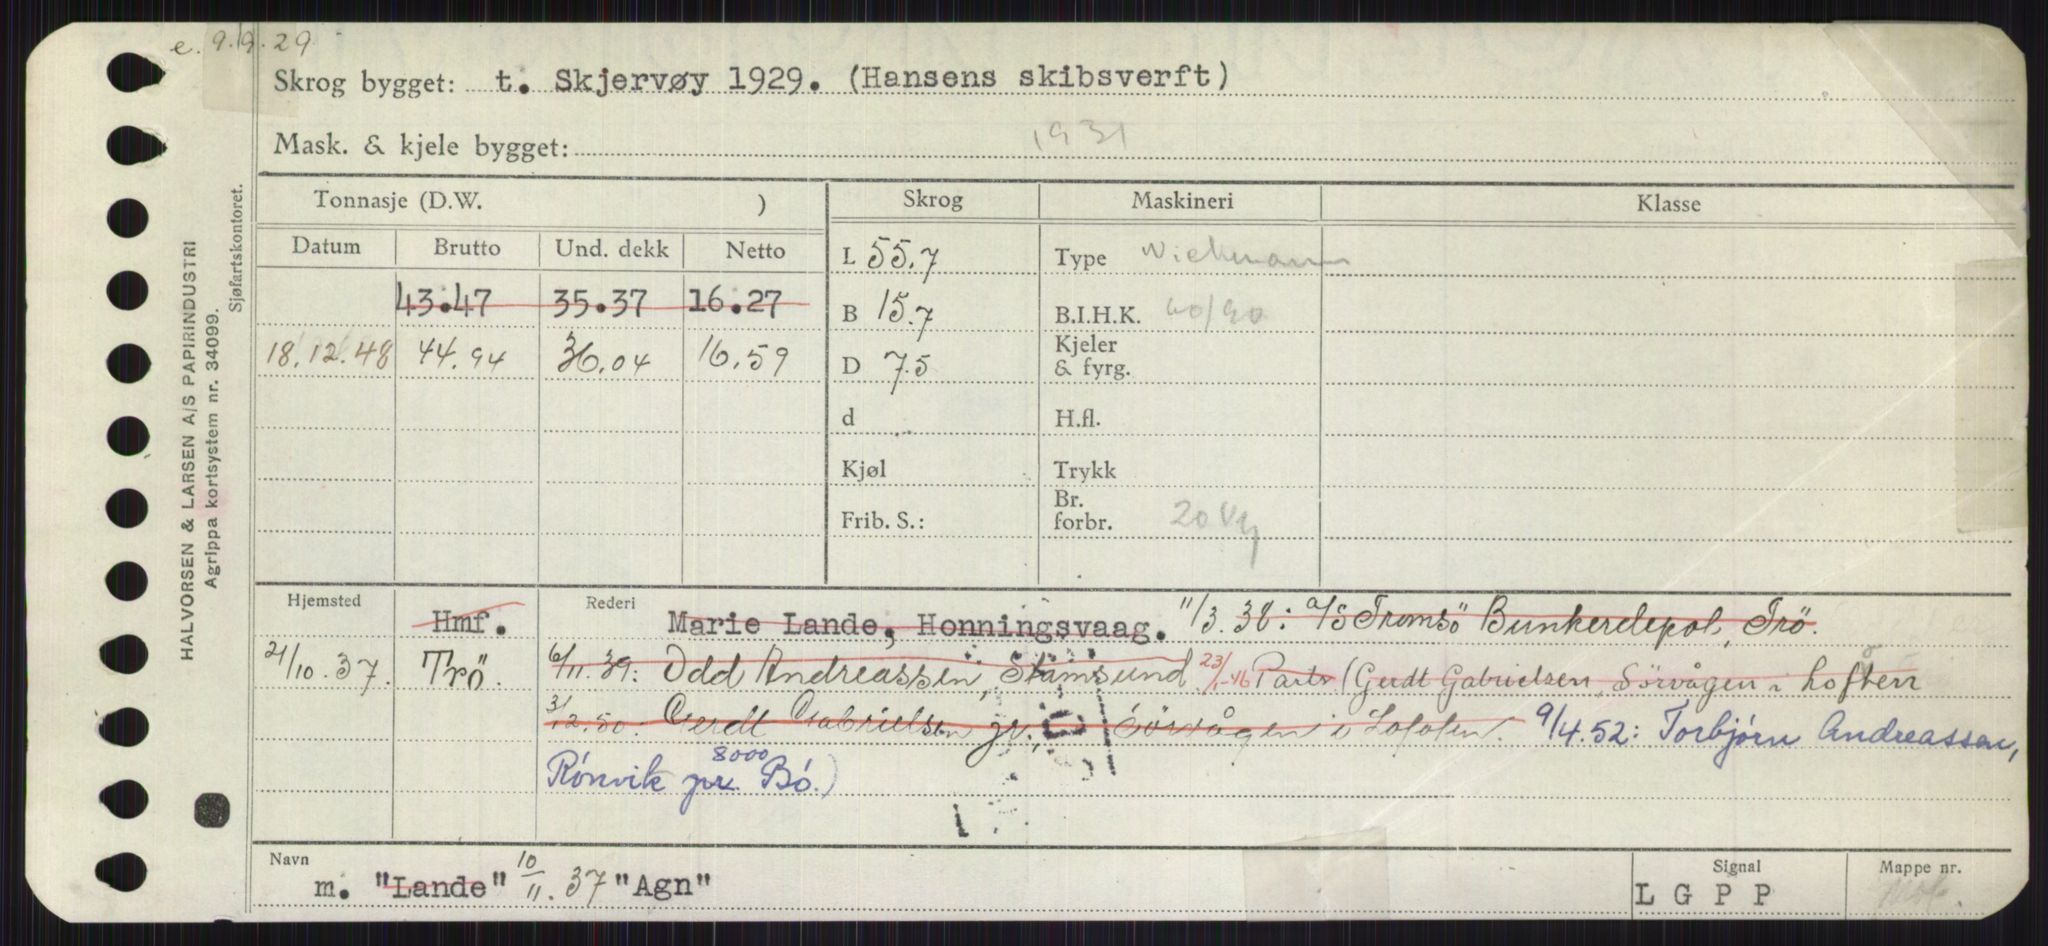 e. 9.9.29
Skrog bygget: t. Skjervøy 1929. (Hansens skibsverft)
Mask. & kjele bygget: 1931
HALVORSEN & LARSEN A/S PAPIRINDUSTRI
Agrippa kortsystem nr. 34099.
Sjøfartskontoret.
Tonnasje (D.W. )
Datum Brutto Und. dekk Netto
43.47 35.37 16.27
18.12.48 44.94 36.04 16.59
Skrog
L 55.7
B 15.7
D 7.5
d
Kjøl
Frib. S.:
Maskineri
Type Wichmann
B.I.H.K.
Kjeler
& fyrg.
H.fl.
Trykk
Br.
forbr.
Klasse
Hjemsted
Hmf.
21/10.37. Trö.
Rederi
Marie Lande, Honningsvaag. 11/3.38: a/s Tromsö Bunkerdepot, Trö.
6/11.39: Odd Andreassen, Stamsund. 23/1-46 Partr. (Gerdt Gabrielsen, Sörvågen i Lofoten
3/12.50: Gerdt Gabrielsen jr., Sörvågen i Lofoten. 9/4.52: Torbjørn Andreassen,
Rønvik pr. 8000 Bø.)
Navn
m. "Lande" 10/11.37 "Agn"
Signal
L G P P
Mappe nr.
Mot.